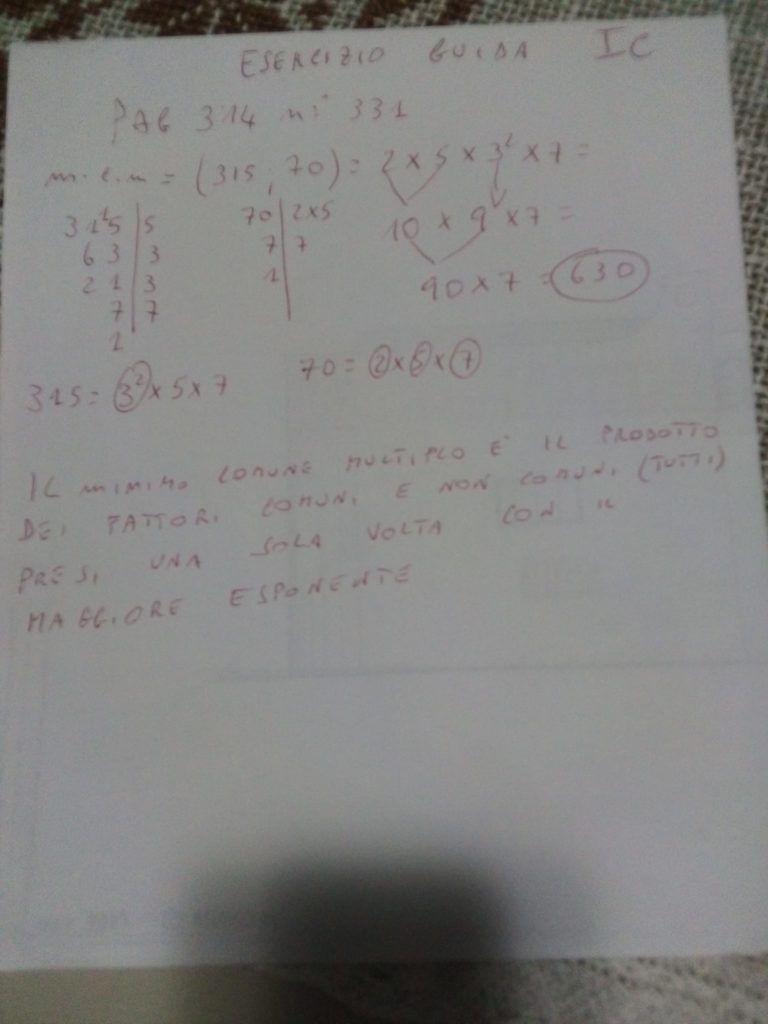 ESERCIZIO GUIDA IC
PAG 314 n° 331
m.c.m = (315; 70) = 2 × 5 × 3² × 7 =
10 × 9 × 7 =
90 × 7 = 630
315 | 5
63 | 3
21 | 3
7 | 7
1
70 | 2×5
7 | 7
1
315 = 3² × 5 × 7
70 = 2 × 5 × 7
IL MINIMO COMUNE MULTIPLO E' IL PRODOTTO
DEI FATTORI COMUNI E NON COMUNI (TUTTI)
PRESI UNA SOLA VOLTA CON IL
MAGGIORE ESPONENTE